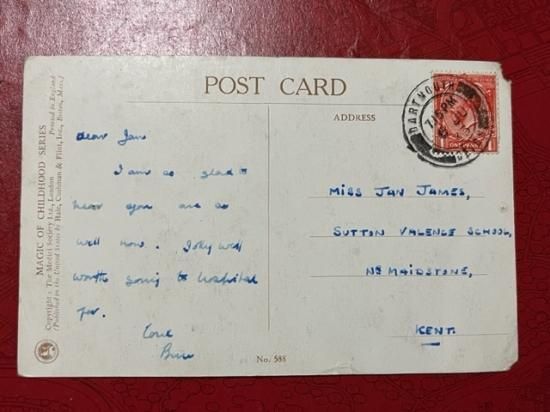 POST CARD
ADDRESS
MAGIC OF CHILDHOOD SERIES
Copyright: The Medici Society Ltd., London Printed in England
(Published in the United States by Hale, Cushman & Flint, Inc., Boston, Mass.)
dear Jan
I am so glad to
hear you are so
well now. Jolly well
worth going to hospital
for.
Love
MISS JAN JAMES,
SUTTON VALENCE SCHOOL,
NR MAIDSTONE,
KENT.
DARTMOUTH
7.15 PM
DEVON
1 ONE PENNY 1
No. 588